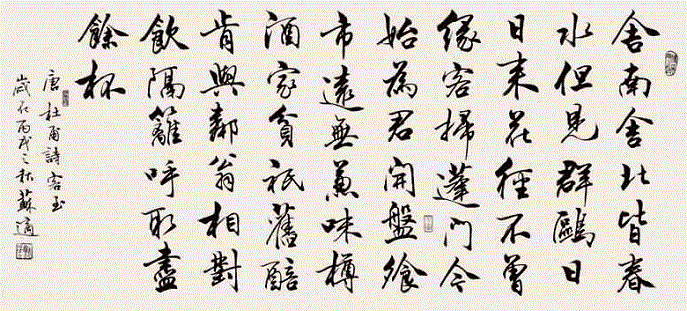 舍南舍北皆春
水但見群鷗日
日来花徑不曾
緣客掃蓬門今
始為君開盤飱
市遠無兼味樽
酒家貧祇舊醅
肯與鄰翁相對
飲隔籬呼取盡
餘杯
唐杜甫詩客至
歲在丙戌之秋蘇適